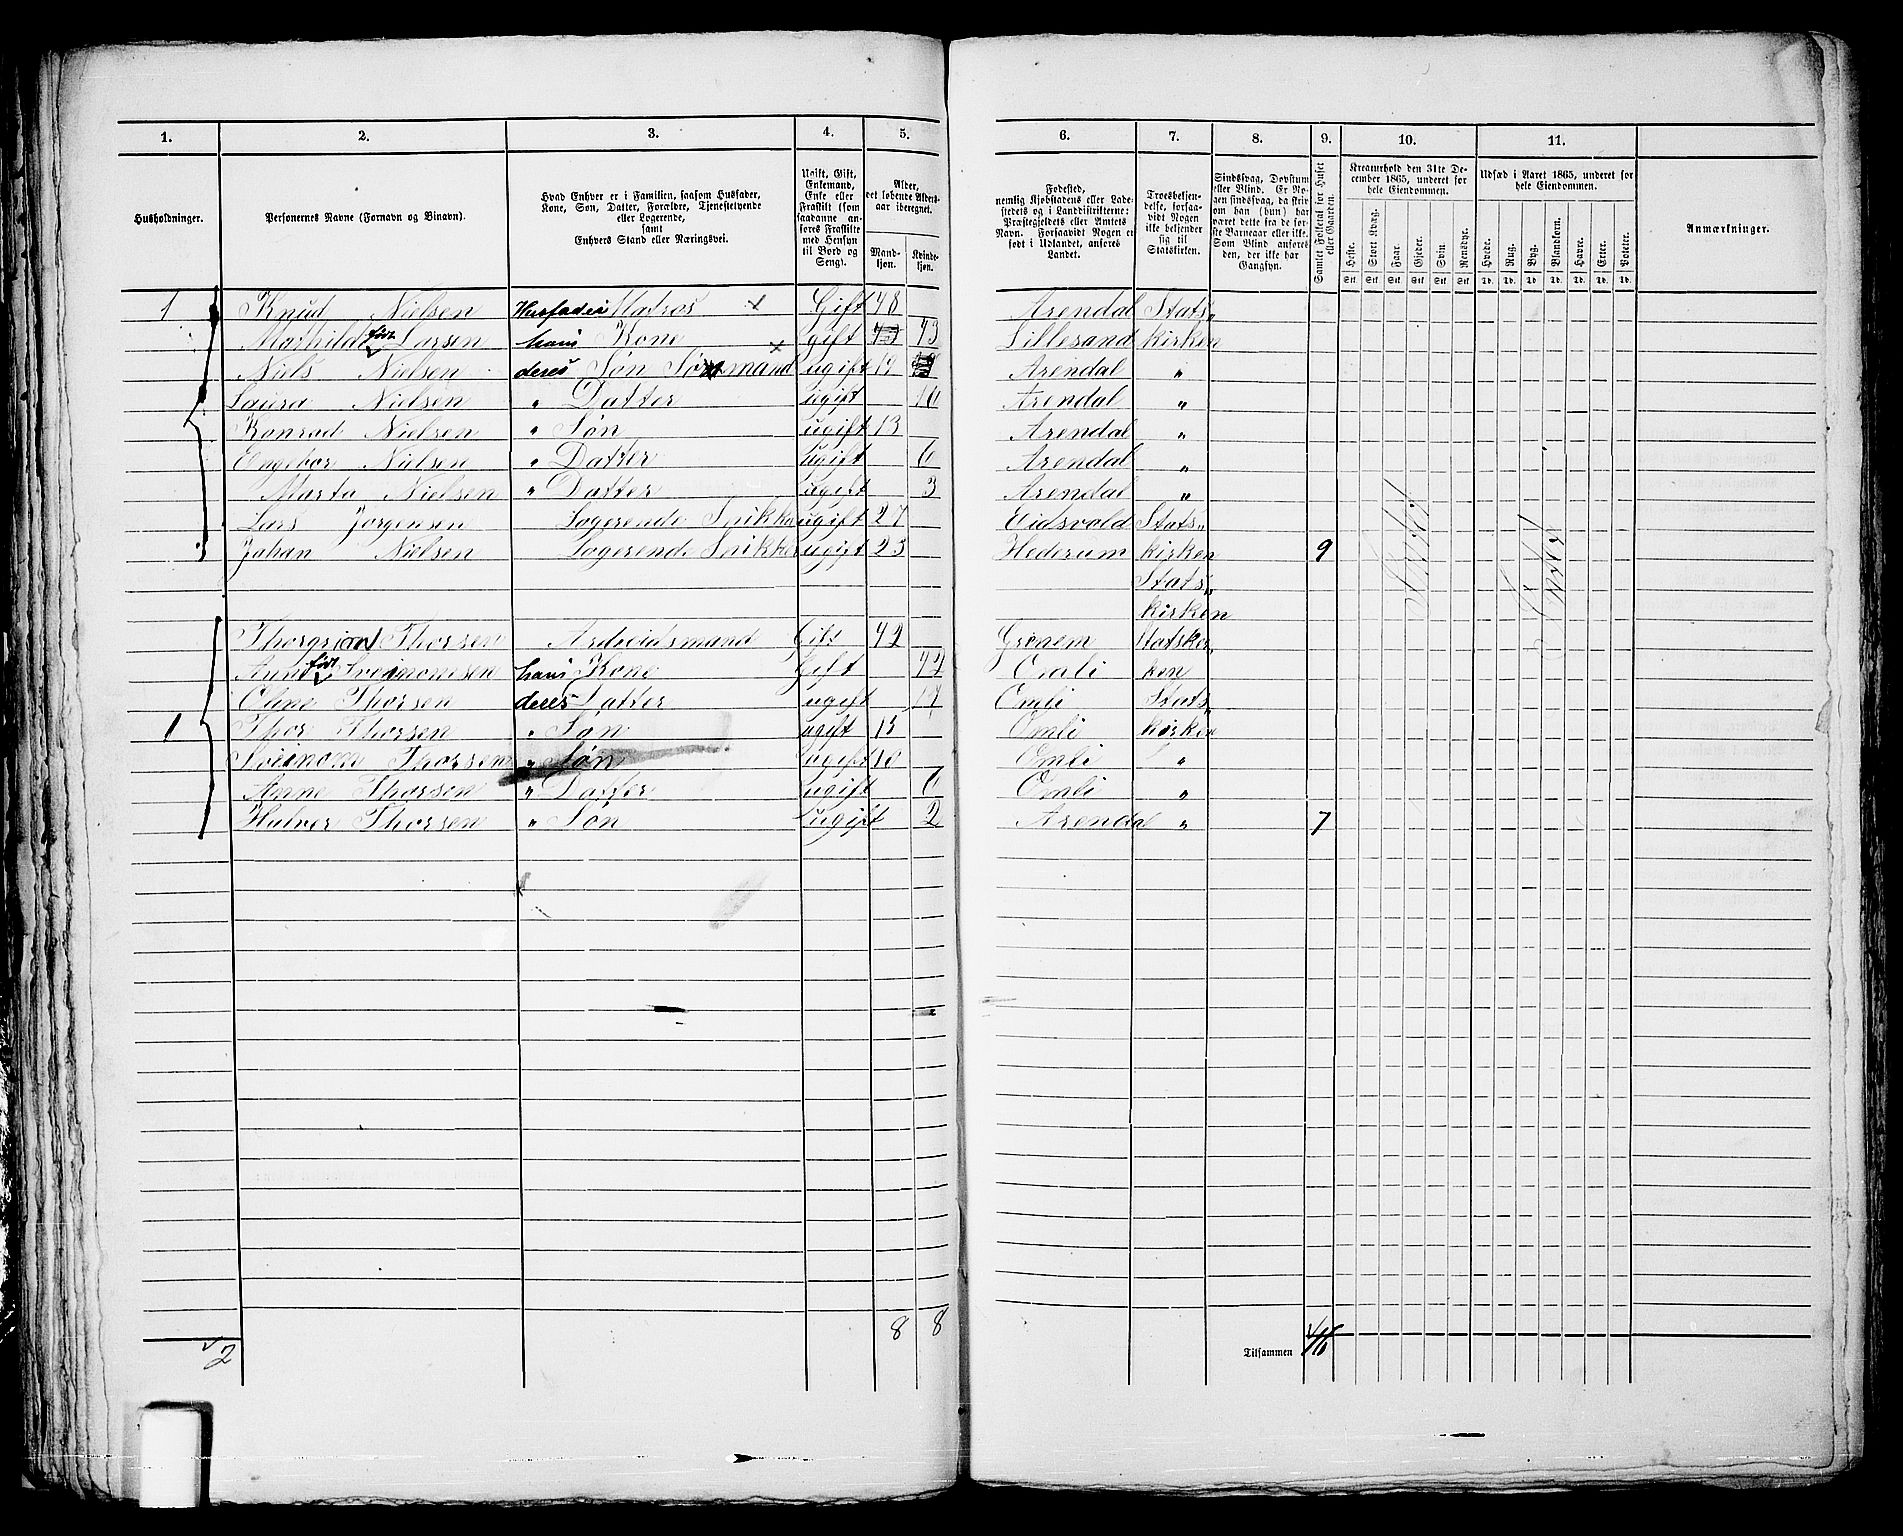 1. 2. 3. 4. 5. 6. 7. 8. 9. 10. 11.
Husholdninger.
Personernes Navne (Fornavn og Binavn).
Hvad Enhver er i Familien, saasom Husfader,
Kone, Søn, Datter, Forældre, Tjenestetyende
eller Logerende,
samt
Enhvers Stand eller Næringsvei.
Ugift, Gift,
Enkemand,
Enke eller
Fraskilt (som
saadanne an-
føres Fraskilte
med Hensyn
til Bord og
Seng).
Alder,
det løbende Alders-
aar iberegnet.
Mand-
kjøn.
Kvinde-
kjøn.
Fødested,
nemlig Kjøbstadens eller Lade-
stedets og i Landdistrikterne:
Præstegjeldets eller Amtets
Navn. Forsaavidt Nogen er
født i Udlandet, anføres
Landet.
Troesbekjen-
delse, forsaa-
vidt Nogen
ikke bekjender
sig til
Statskirken.
Sindssvag, Døvstum
eller Blind. Er No-
gen sindssvag, da skri-
ves om han (hun) har
været dette fra de før-
ste Barneaar eller ikke.
Som Blind anføres
den, der ikke har
Gangsyn.
Samlet Folketal for Huset
eller Gaarden.
Kreaturhold den 31te De-
cember 1865, underet for
hele Eiendommen.
Heste. Stort Kvæg. Faar. Gjeder. Svin. Rensdyr.
Stk. Stk. Stk. Stk. Stk. Stk.
Udsæd i Aaret 1865, underet for
hele Eiendommen.
Hvede. Rug. Byg. Blandkorn. Havre. Erter. Poteter.
Td. Td. Td. Td. Td. Td. Td.
Anmærkninger.
1 Knud Nielsen Husfader Matros x Gift 48 Arendal Stats„
Mathilde født Larsen hans Kone gift 43 Lillesand kirken
Niels Nielsen deres Søn Sømand x ugift 19 Arendal „
Laura Nielsen „ Datter ugift 16 Arendal „
Konrad Nielsen „ Søn ugift 13 Arendal „
Engebor Nielsen „ Datter ugift 6 Arendal „
Marta Nielsen „ Datter ugift 3 Arendal „
Lars Jørgensen Logerende Snikker ugift 27 Eidsvold Stats„
Johan Nielsen Logerende Snikker ugift 23 Hederum kirken 9
Stats„
kirken
Thorgrim Thorsen Arbeidsmand Gift 42 Grønem Statskir„
Anne født Sveinomsen hans Kone Gift 42 Omli ken
Oline Thorsen deres Datter ugift 17 Omli Stats„
1 Thor Thorsen „ Søn ugift 15 Omli kirken
Sveinom Thorsen „ Søn ugift 10 Omli „
Anne Thorsen „ Datter ugift 6 Omli „
Halvor Thorsen „ Søn ugift 2 Arendal „ 7
2 8 8
Tilsammen 16